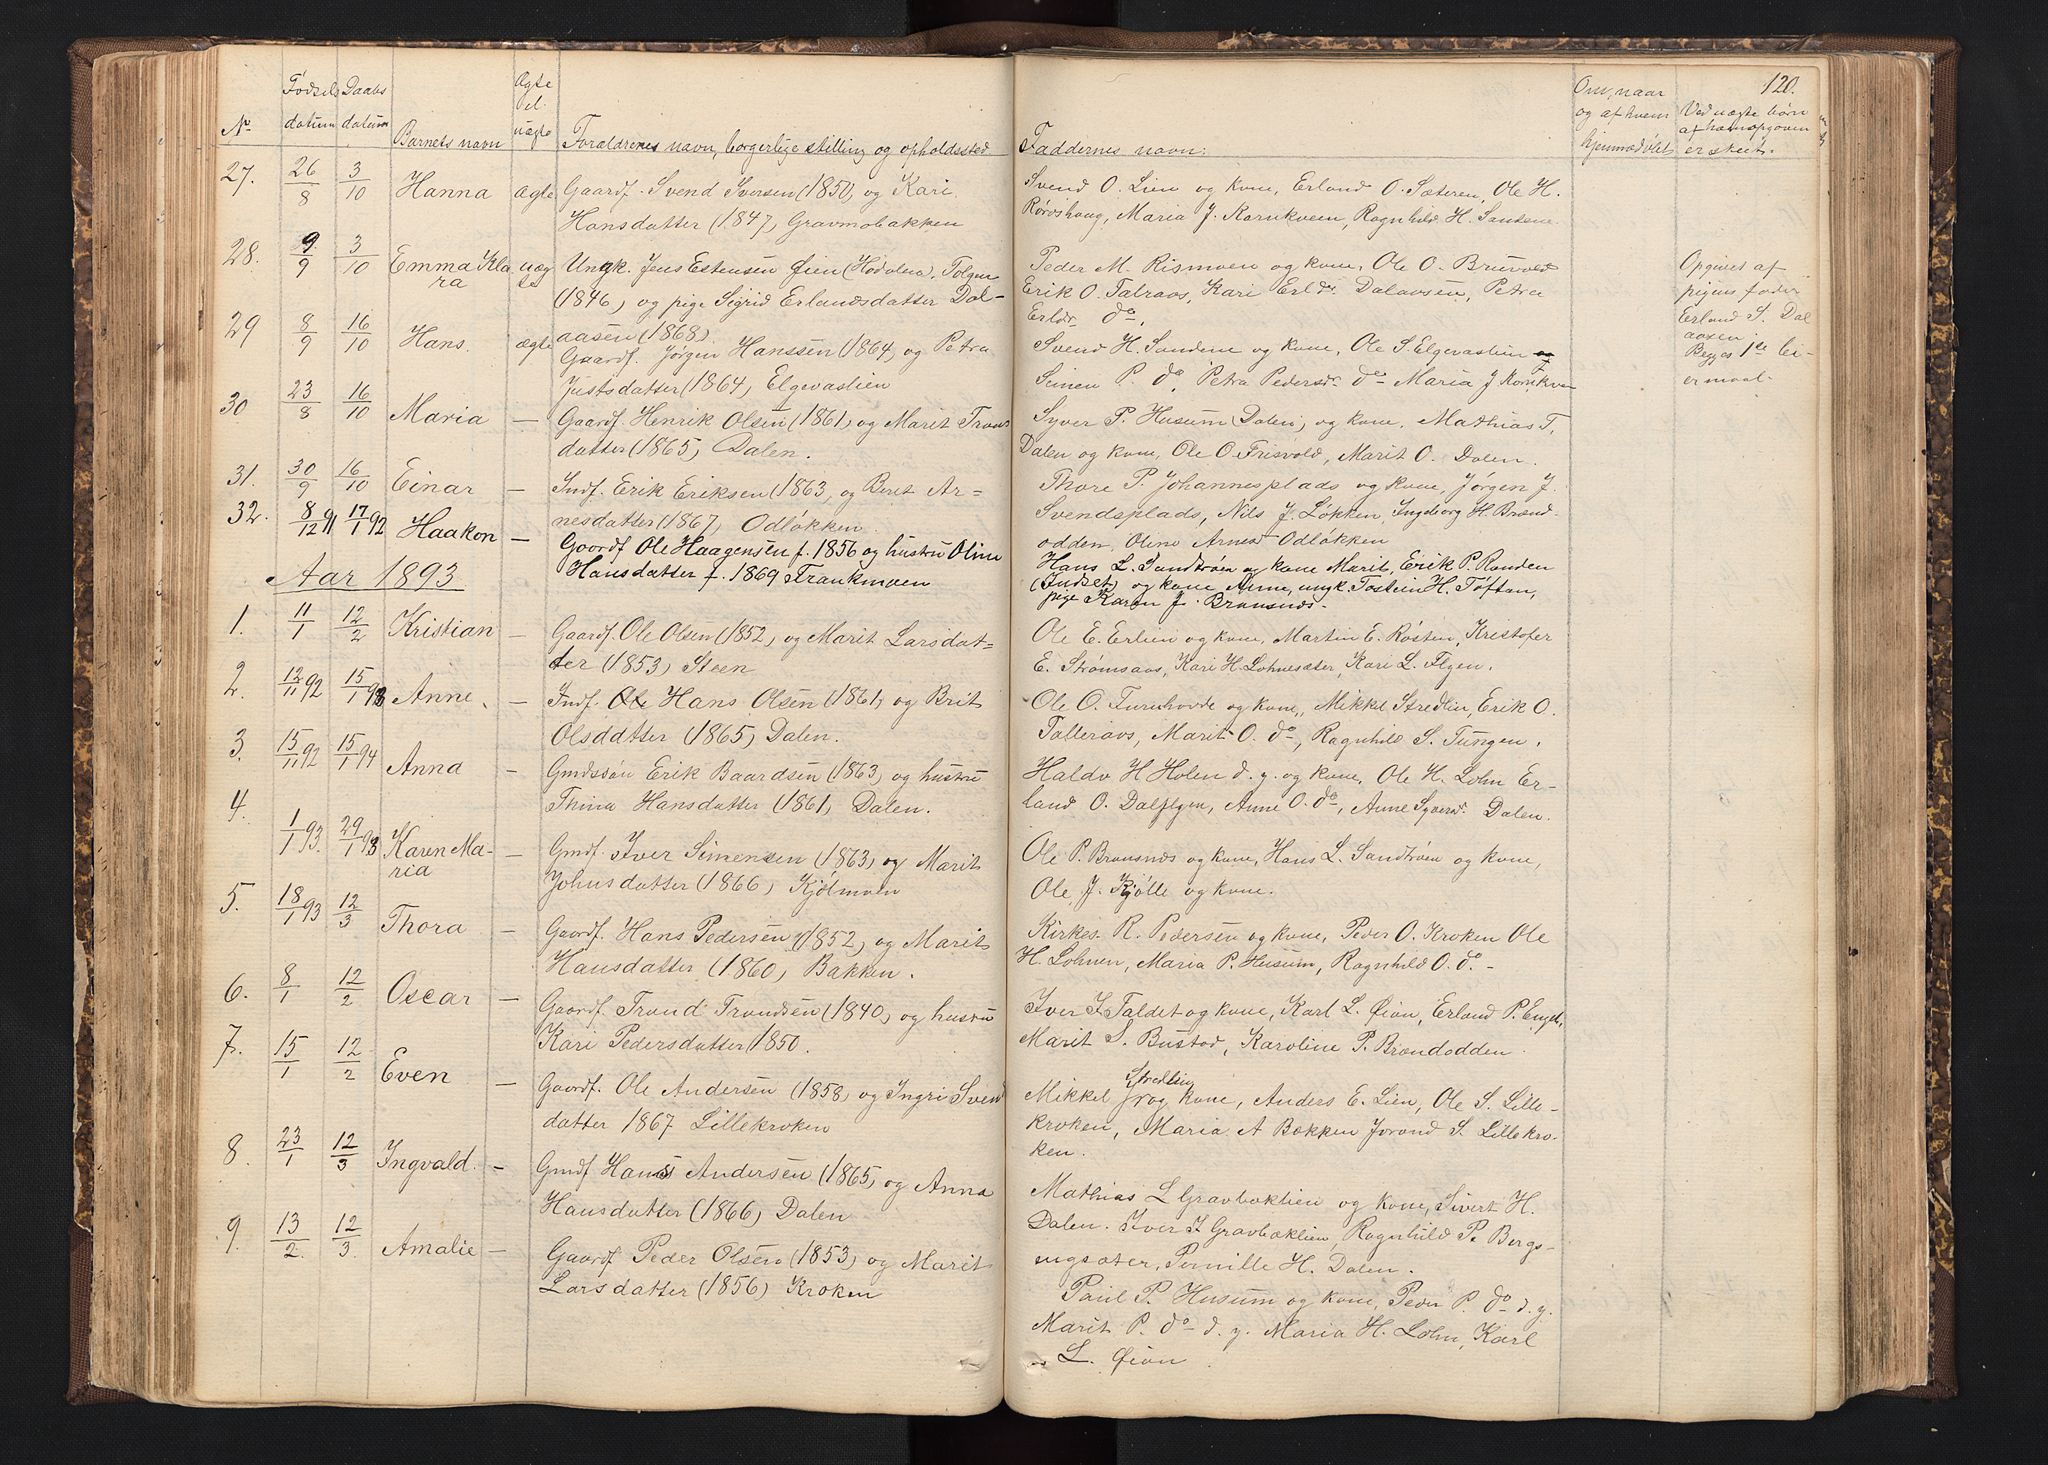 120.
No
Fødsels
datum
Daabs
datum
Barnets navn
Ægte
el.
uægte
Forældrenes navn, borgerlige stilling og opholdssted
Faddernes navn:
Om, naar
og af hvem
hjemmedøbt
Ved uægte børn
af hvem opgaven
er skeet.
27. 26/8 3/10 Hanna ægte Gaardf. Svend Iversen (1850) og Kari
Hansdatter (1847) Gravmobakken
Svend O. Lien og kone, Erland O. Sæteren, Ole H.
Røroshaug, Maria J. Kornkveen, Ragnhild H. Sandene
28. 9/9 3/10 Emma Kla uæg Ungk. Jens Estensen Øien (Hodalen, Tolgen
ra te (1846) og pige Sigrid Erlandsdatter Dal-
aasen (1868)
Peder M. Rismoen og kone, Ole O. Bruvold
Erik O. Talraas, Kari Erldr. Dalaasen, Petra
Erldr. do,
Opgivet af
pigens fader
Erland S. Dal
aasen
Begges 1ste lei-
ermaal.
29 8/9 16/10 Hans. ægte Gaardf. Jørgen Hanssen (1864) og Petra
Justsdatter (1864) Elgevastien
Svend H. Sandene og kone, Ole S. Elgevastien
Simen P. do, Petra Pedersdr. do Maria J Kornkven
30 23/8 16/10 Maria — Gaardf. Henrik Olsen (1861) og Marit Trons
datter (1865) Dalen.
Syver P. Husum (Dalen) og kone, Mathias T.
Dalen og kone, Ole O. Frisvold, Marit O. Dalen.
31. 30/9 16/10 Einar — Indf. Erik Eriksen (1863) og Beret Ar=
nesdatter (1867) Odløkken.
Thore P. Johannesplads og kone, Jørgen J.
Svendsplads, Nils J. Løkken, Ingeborg H. Brænd-
odden, Oline Arnesd Odløkken
32. 8/12 91 17/1 92 Haakon — Gaardf Ole Haagensen f. 1856 og hustru Oline
Hansdatter f. 1869 Trankmoen
Hans L. Sandtrøen og kone Marit, Erik P. Randen
(Indset) og kone Anne, ungk. Tostein H. Tøftan,
pige Karen J. Bransnæs.
Aar 1893
1. 11/1 12/2 Kristian — Gaardf. Ole Olsen (1852) og Marit Larsdat=
ter (1853) Steen
Ole E. Erlien og kone, Martin E. Røsten, Kristofer
E. Strømsaas, Kari H. Lohnesæter, Kari L. Flyen.
2. 12/11 92 15/1 93 Anne. — Indf. Ole Hans Olsen (1861) og Brit
Olsdatter (1865) Dalen.
Ole O. Furuhovde og kone, Mikkel Stredlien, Erik O.
Talleraas, Marit O. do, Ragnhild S. Tungen.
3. 15/11 92 15/1 94 Anna — Gmdssøn Erik Baardsen (1863) og hustru
Thina Hansdatter (1861) Dalen.
Haldo H Holen d. y. og kone, Ole H. Lohn Er-
land O. Dalflyen, Anne O. do, Anne Syversd. Dalen.
4. 1/1 93. 29/1 93 Karen Ma- — Gmdf. Iver Simensen (1863) og Marit
ria Johnsdatter (1866) Kjølmoen
Ole P. Bransnæs og kone, Hans L. Sandtrøen og kone,
Ole J. Kjølle og kone.
5. 18/1 93 12/3 Thora — Gaardf. Hans Pedersen (1852) og Marit
Hansdatter (1860) Bakken.
Kirkes. R. Pedersen og kone, Peder O. Kroken Ole
H. Lohnen, Maria P. Husum, Ragnhild O. do. -
6. 8/1 12/2 Oscar — Gaardf. Trond Trondsen (1840) og hustru
Kari Pedersdatter 1850.
Iver I Taldet og kone, Karl L. Øian, Erland P. Enget,
Marit S. Bustad, Karoline P. Brændodden.
7. 15/1 12/2 Even — Gaardf. Ole Andersen (1858) og Ingri Svend
datter 1867 Lillekroken
Stredlien
Mikkel og kone, Anders E. Lien, Ole S. Lille-
kroken, Maria A Bakken Jorand S. Lillekro-
ken.
8. 23/1 12/3 Ingvald. — Gmdf Hans Andersen (1865) og Anna
Hansdatter (1866) Dalen
Mathias L Gravbaklien og kone, Sivert H.
Dalen. Iver I Gravbaklien, Ragnhild P. Bergs-
engsæter, Pernille H. Dalen.
9. 13/2. 12/3. Amalie — Gaardf Peder Olsen (1853) og Marit
Larsdatter (1856) Kroken
Paul P. Husum og kone, Peder P. do d. y.
Marit P. do d. y. Maria H. Lohn, Karl
L. Øian.